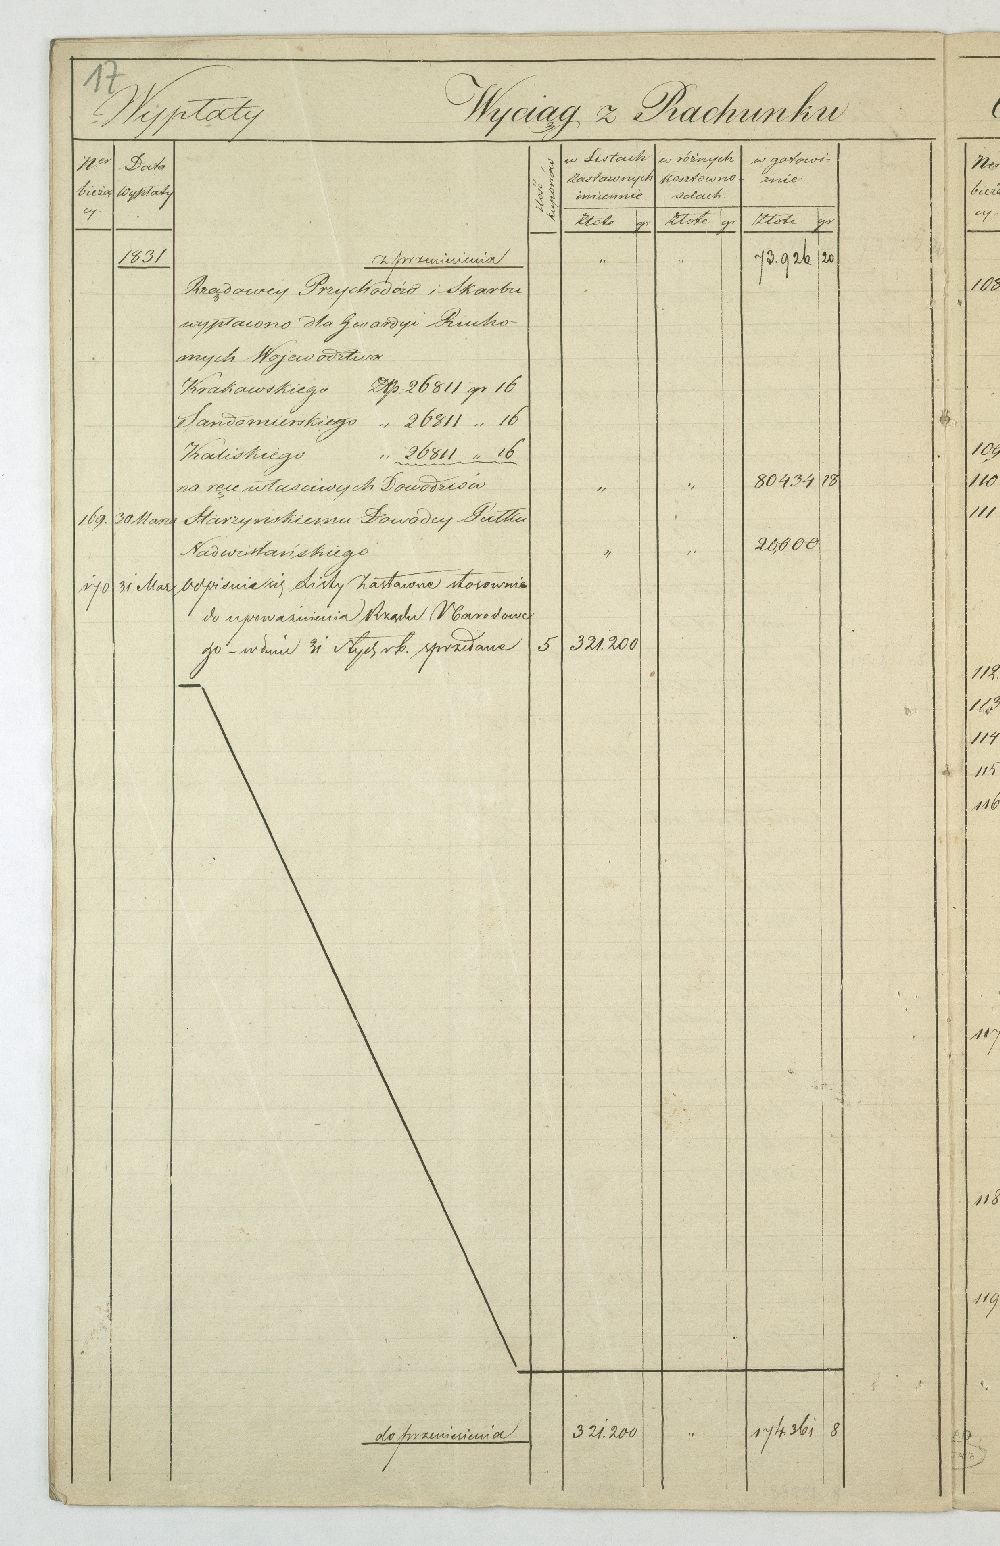 17
Wypłaty Wyciąg z Rachunku
Ner bieżący Data Wypłaty Ilość kuponów w Listach zastawnych imiennie w różnych kosztownościach w gotowiźnie
Złote gr Złote gr Złote gr
1831 z przeniesienia „ „ 73.926 20
Rządowey Przychodów i Skarbu
wypłacono dla Gwardyi Rucho-
mych Województwa
Krakowskiego Złp. 26811 gr 16
Sandomierskiego „ 26811 „ 16
Kaliskiego „ 26811 „ 16
na ręce właściwych Dowódzców „ „ 80434 18
169. 30 Marca Starzynskiemu Dowódcy Pułku
Nadwiślańskiego „ „ 20,000
170 31 Mar. Odpisuie się Listy Zastawne stosownie
do upoważnienia Rządu Narodowe
go w dniu 31 Stycz. r. b. sprzedane 5 321.200
do przeniesienia 321.200 „ 174361 8
Ner
108
109
110
111
112
113
114
115
116
117
118
119